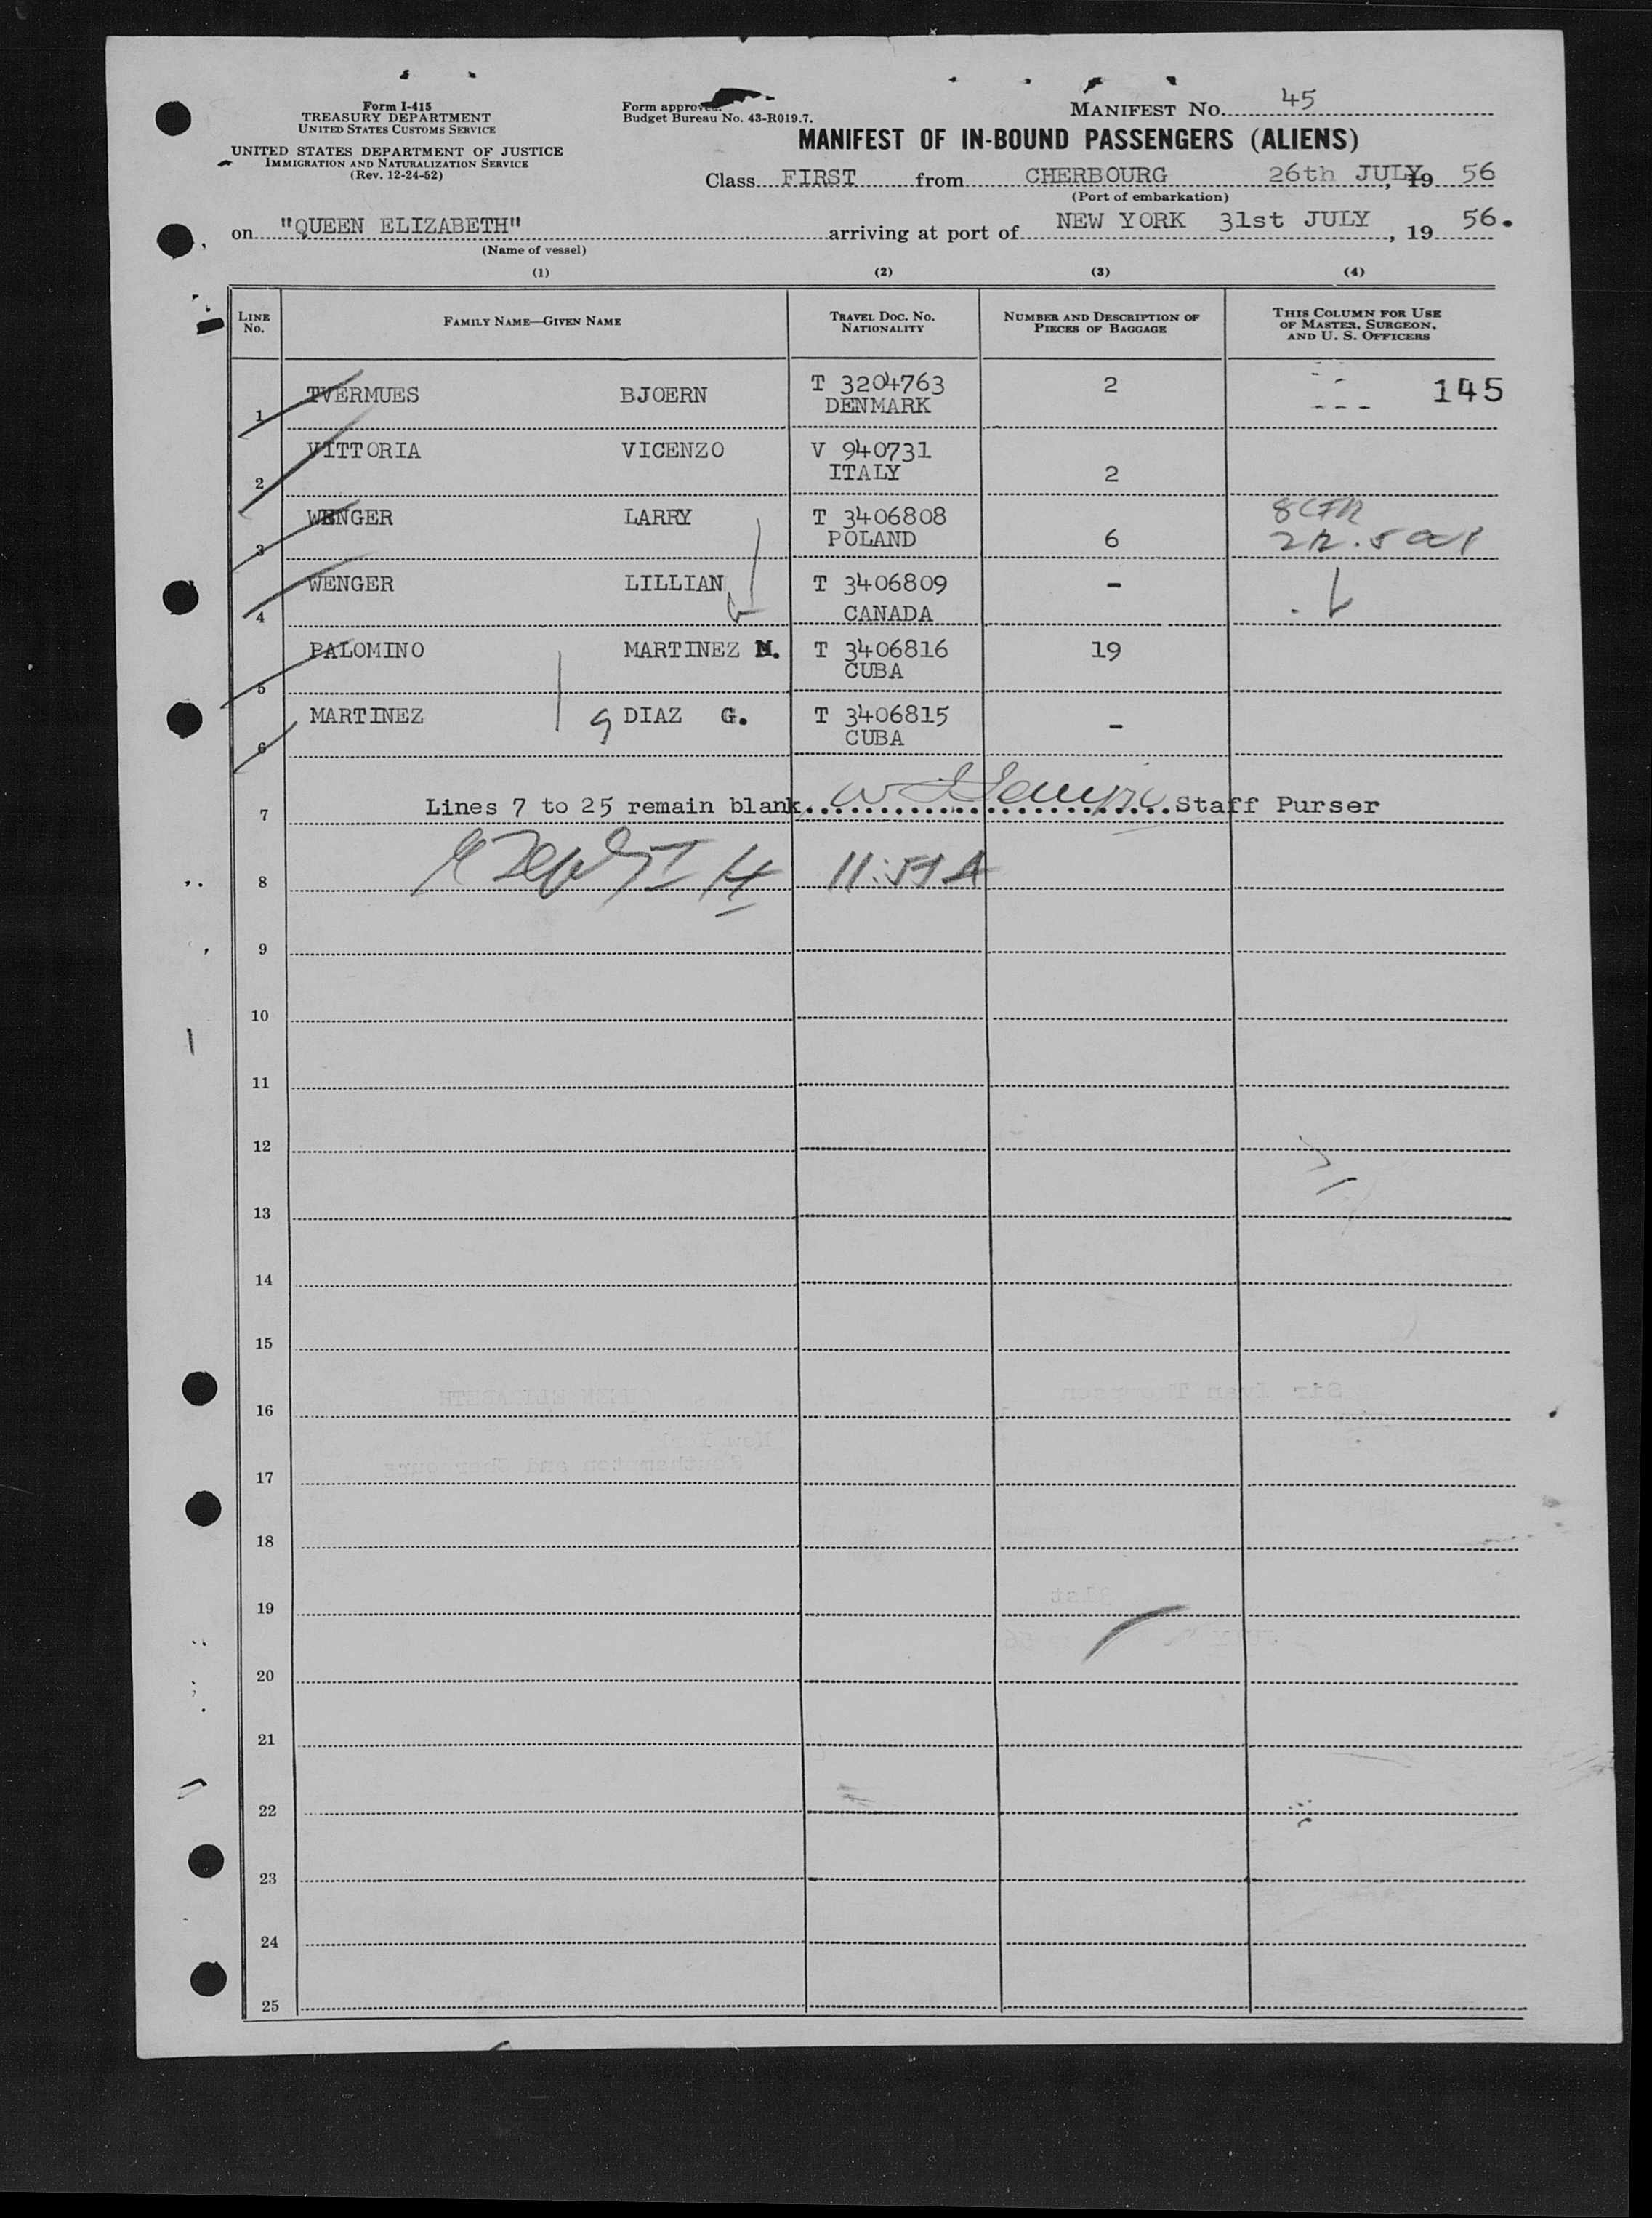 Form I-415
TREASURY DEPARTMENT
UNITED STATES CUSTOMS SERVICE
UNITED STATES DEPARTMENT OF JUSTICE
IMMIGRATION AND NATURALIZATION SERVICE
(Rev. 12-24-52)
Form approved.
Budget Bureau No. 43-R019.7.
MANIFEST NO. 45
MANIFEST OF IN-BOUND PASSENGERS (ALIENS)
Class FIRST from CHERBOURG 26th JULY, 19 56
(Port of embarkation)
on "QUEEN ELIZABETH" arriving at port of NEW YORK 31st JULY, 19 56.
(Name of vessel)
(1) (2) (3) (4)
LINE No. FAMILY NAME—GIVEN NAME TRAVEL DOC. NO. NATIONALITY NUMBER AND DESCRIPTION OF PIECES OF BAGGAGE THIS COLUMN FOR USE OF MASTER, SURGEON, AND U. S. OFFICERS
1 TVERMUES BJOERN T 3204763 DENMARK 2 145
2 VITTORIA VICENZO V 940731 ITALY 2
3 WENGER LARRY T 3406808 POLAND 6 8 CFR
4 WENGER LILLIAN T 3406809 CANADA -
5 PALOMINO MARTINEZ M. T 3406816 CUBA 19
6 MARTINEZ DIAZ G. T 3406815 CUBA -
7 Lines 7 to 25 remain blank Staff Purser
8
9
10
11
12
13
14
15
16
17
18
19
20
21
22
23
24
25